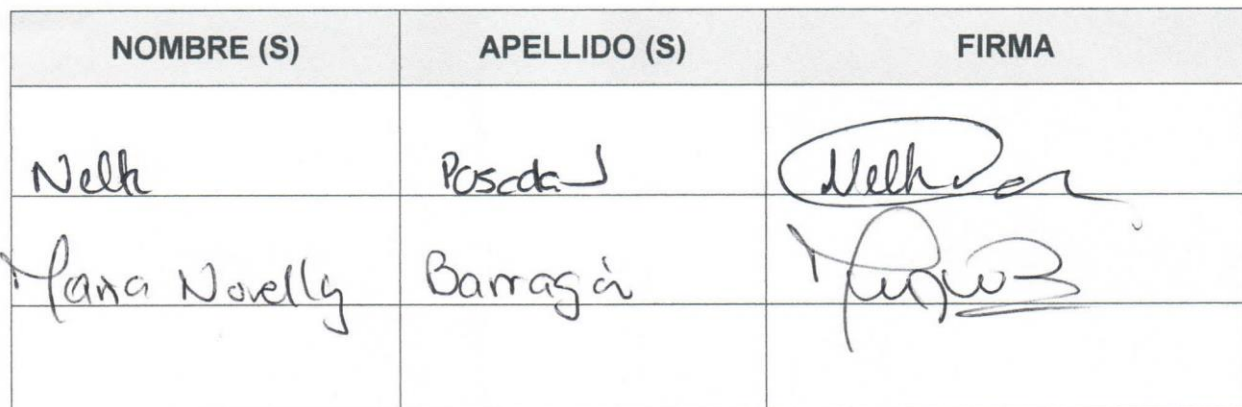 NOMBRE (S) APELLIDO (S) FIRMA
Nelh Posada
Maria Novelly Barragán